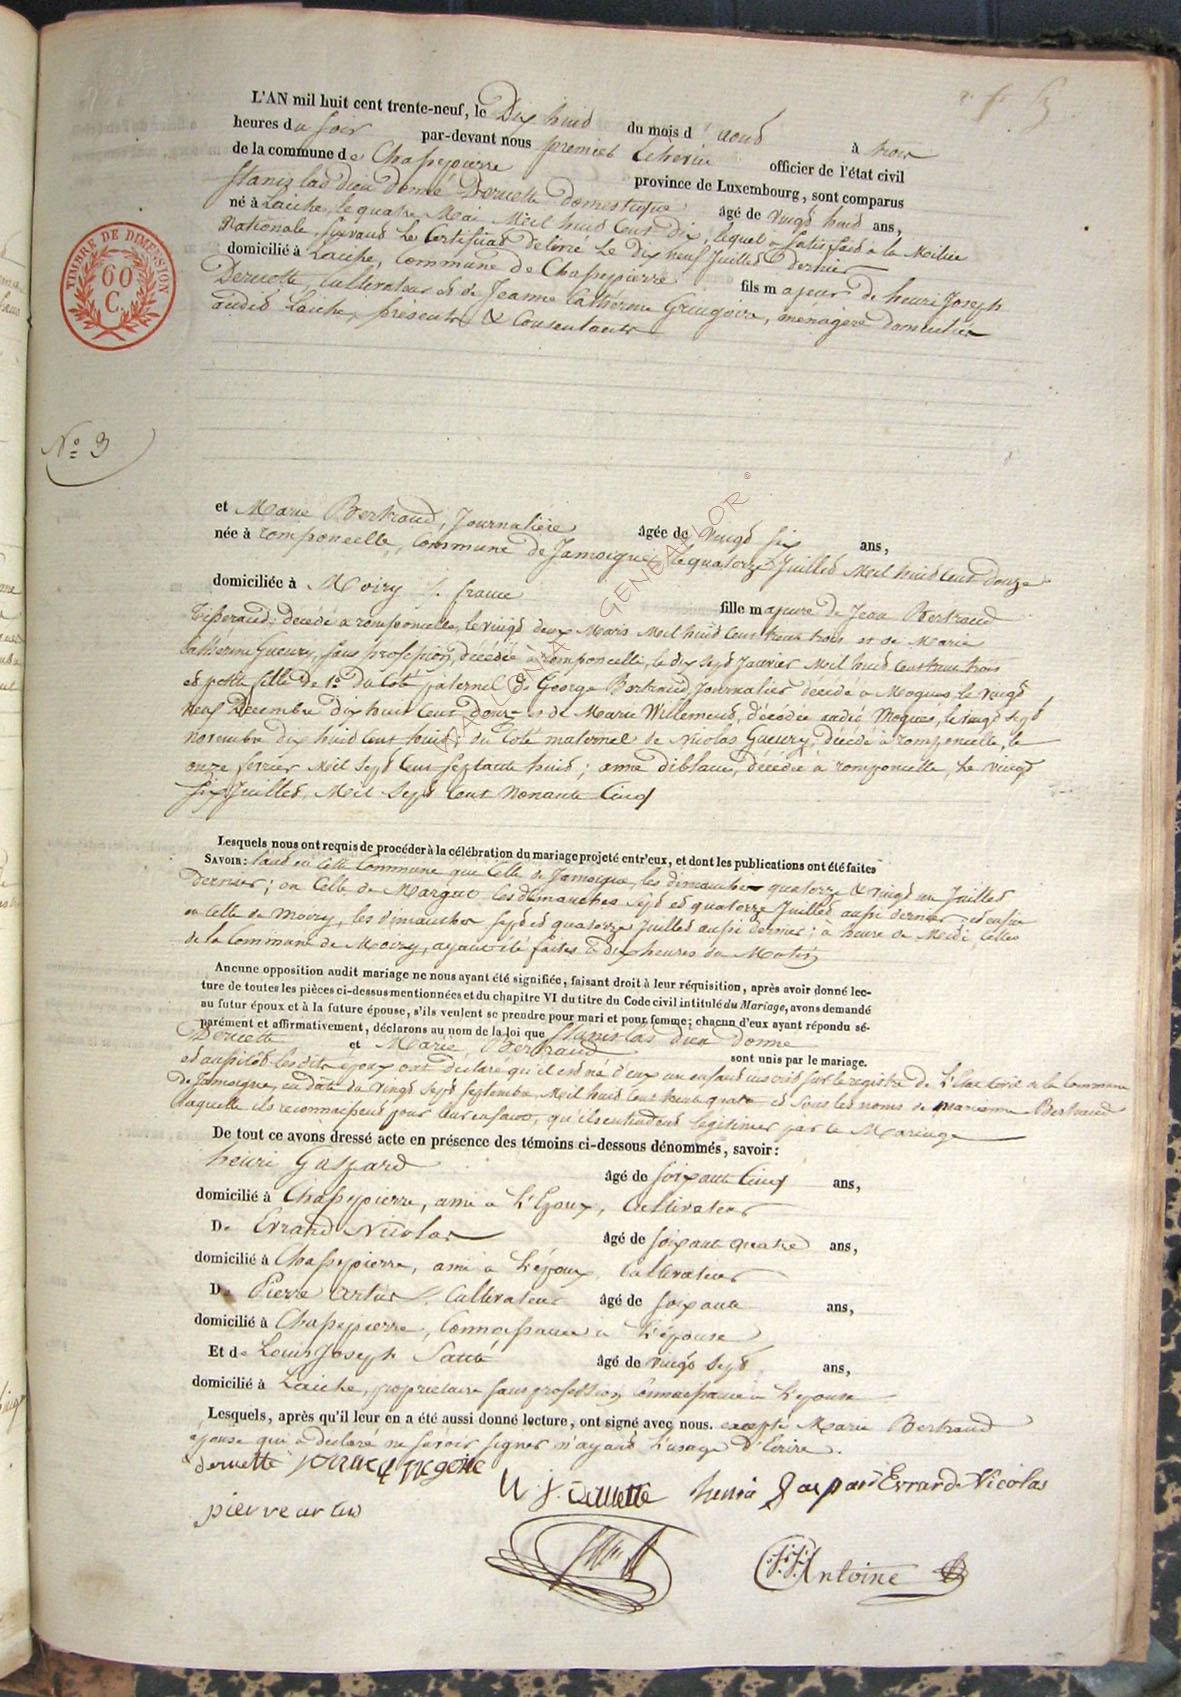 L'AN mil huit cent trente-neuf, le Dix huit du mois d'aout à trois
heures du soir par-devant nous premier Echevin officier de l'état civil
de la commune de Chassepierre province de Luxembourg, sont comparus
Stanislas dieu donné Deruette domestique âgé de vingt huit ans,
né à Laiche, le quatre Mai Mil huit Cent dix, lequel a satisfait a la Milice
Nationale, suivant le Certificat delivré le dix neuf Juillet dernier
domicilié à Laiche, Commune de Chassepierre fils majeur de henri Joseph
Deruette, Cultivateur et de Jeanne Catherine menagere domiciliés
audit Laiche, présents & Consentants
TIMBRE DE DIMENSION
60
C.
N.° 3
et Marie Bertrand, Journalière âgée de vingt six ans,
née à romponcelle, Commune de Jamoigne, le quatorze Juillet Mil huit Cent douze
domiciliée à Moiry, france fille majeure de Jean Bertrand
Tisserand, décédé à romponcelle, le vingt deux Mars Mil huit Cent trente trois et de Marie
Catherine Gueury, sans profession, décédée à romponcelle, le dix sept Janvier Mil huit Cent trente trois
et petite fille de 1.° du Coté paternel de George Bertrand Journalier décédé à Mogues, le vingt
neuf Décembre dix huit Cent douze et de Marie Willemend, décédée audit Mogues, le vingt sept
novembre dix huit Cent huit; du Coté maternel de Nicolas Gueury, décédé à romponcelle, le
onze fevrier Mil Sept Cent Septante huit; anne décédée à romponcelle, le vingt
six Juillet, Mil Sept Cent Nonante Cinq
Lesquels nous ont requis de procéder à la célébration du mariage projeté entr'eux, et dont les publications ont été faites
SAVOIR: tant en Cette Commune que Celle de Jamoigne, les dimanches quatorze & vingt un Juillet
dernier; en Celle de Margut les dimanches sept et quatorze Juillet aussi dernier et enfin
en Celle de Moiry, les dimanches sept et quatorze Juillet aussi dernier; à heure de Midi, Celles
de la Commune de Moiry, ayant été faites à dix heures du Matin
Aucune opposition audit mariage ne nous ayant été signifiée, faisant droit à leur réquisition, après avoir donné lec-
ture de toutes les pièces ci-dessus mentionnées et du chapitre VI du titre du Code civil intitulé du Mariage, avons demandé
au futur époux et à la future épouse, s'ils veulent se prendre pour mari et pour femme; chacun d'eux ayant répondu sé-
parément et affirmativement, déclarons au nom de la loi que Stanislas dieu donné
Deruette et Marie Bertrand sont unis par le mariage.
et aussitôt les dits époux ont déclaré qu'il est né d'eux un enfant inscrit sur le registre de L'Etat Civil de la Commune
de Jamoigne, en date du vingt sept septembre Mil huit Cent trente quatre et sous les noms de Bertrand
laquelle ils reconnaissent pour leur enfant, qu'ils entendent legitimer par le Mariage
De tout ce avons dressé acte en présence des témoins ci-dessous dénommés, savoir:
henri Gaspard âgé de soixante Cinq ans,
domicilié à Chassepierre, ami à L'Epoux, Cultivateur
De Errard Nicolas âgé de soixante quatre ans,
domicilié à Chassepierre, ami à L'époux, Cultivateur
De Pierre Artus, Cultivateur âgé de soixante ans,
domicilié à Chassepierre, Connaissance à L'épouse
Et de Louis Joseph âgé de vingt sept, ans,
domicilié à Laiche, proprietaire sans profession Connaissance à L'épouse
Lesquels, après qu'il leur en a été aussi donné lecture, ont signé avec nous. excepté Marie Bertrand
épouse qui a declaré ne savoir signer n'ayant L'usage d'Ecrire.
deruette henri Gaspard Errard Nicolas
pierre artus
Antoine
GENEALOR ©